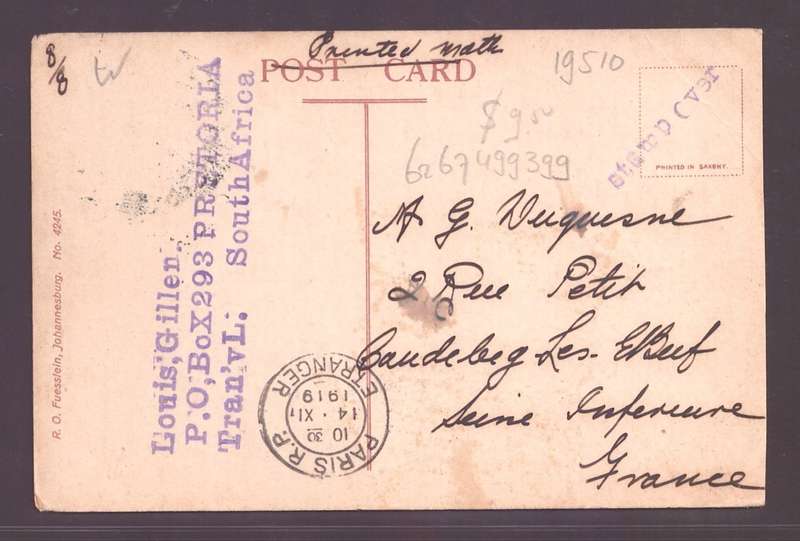 Printed
POST CARD
8/8
19510
stamp Over
PRINTED IN SAXONY.
$9.00
6267499399
R. O. Fuesslein, Johannesburg. No. 4245.
Louis,Gillen.
P.O,BoX293 PRETORIA
Tran'vL. South Africa
G. Duquesne
2 Rue Petit
Caudebeg-Les-Elbeuf
Seine Inferieure
France
PARIS R.P.
10 30
14 . XI
1919
ETRANGER